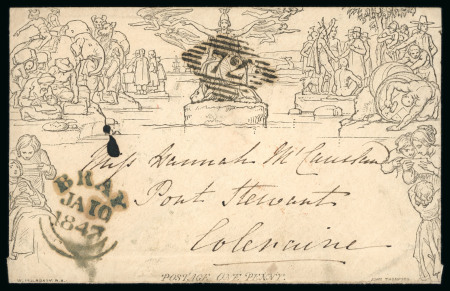 72
BRAY
JA 10
1847
Miss Hannah McCausland
Port Stewart
Coleraine
POSTAGE ONE PENNY.
W. MULREADY R.A.
JOHN THOMPSON